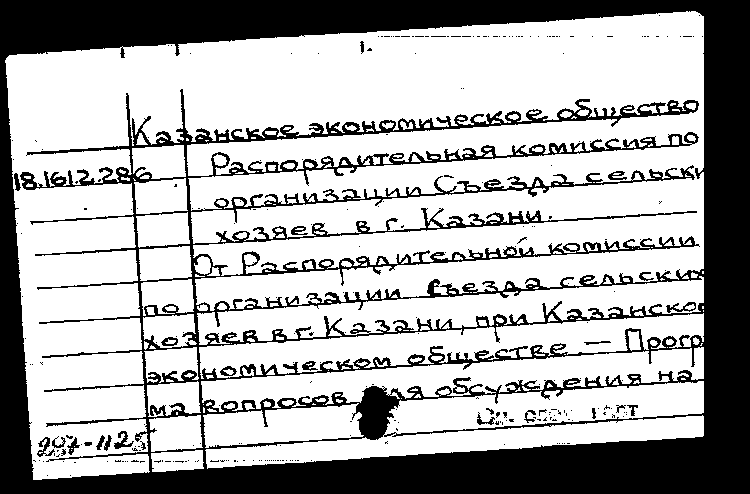 1.
Казанское экономическое общество
18.161.2.286 Распорядительная комиссия по
организации Съезда сельски
хозяев в г. Казани.
От Распорядительной комиссии
по организации съезда сельских
хозяев в г. Казани, при Казанском
экономическом обществе. — Прогр
ма вопросов для обсуждения на
297-1125